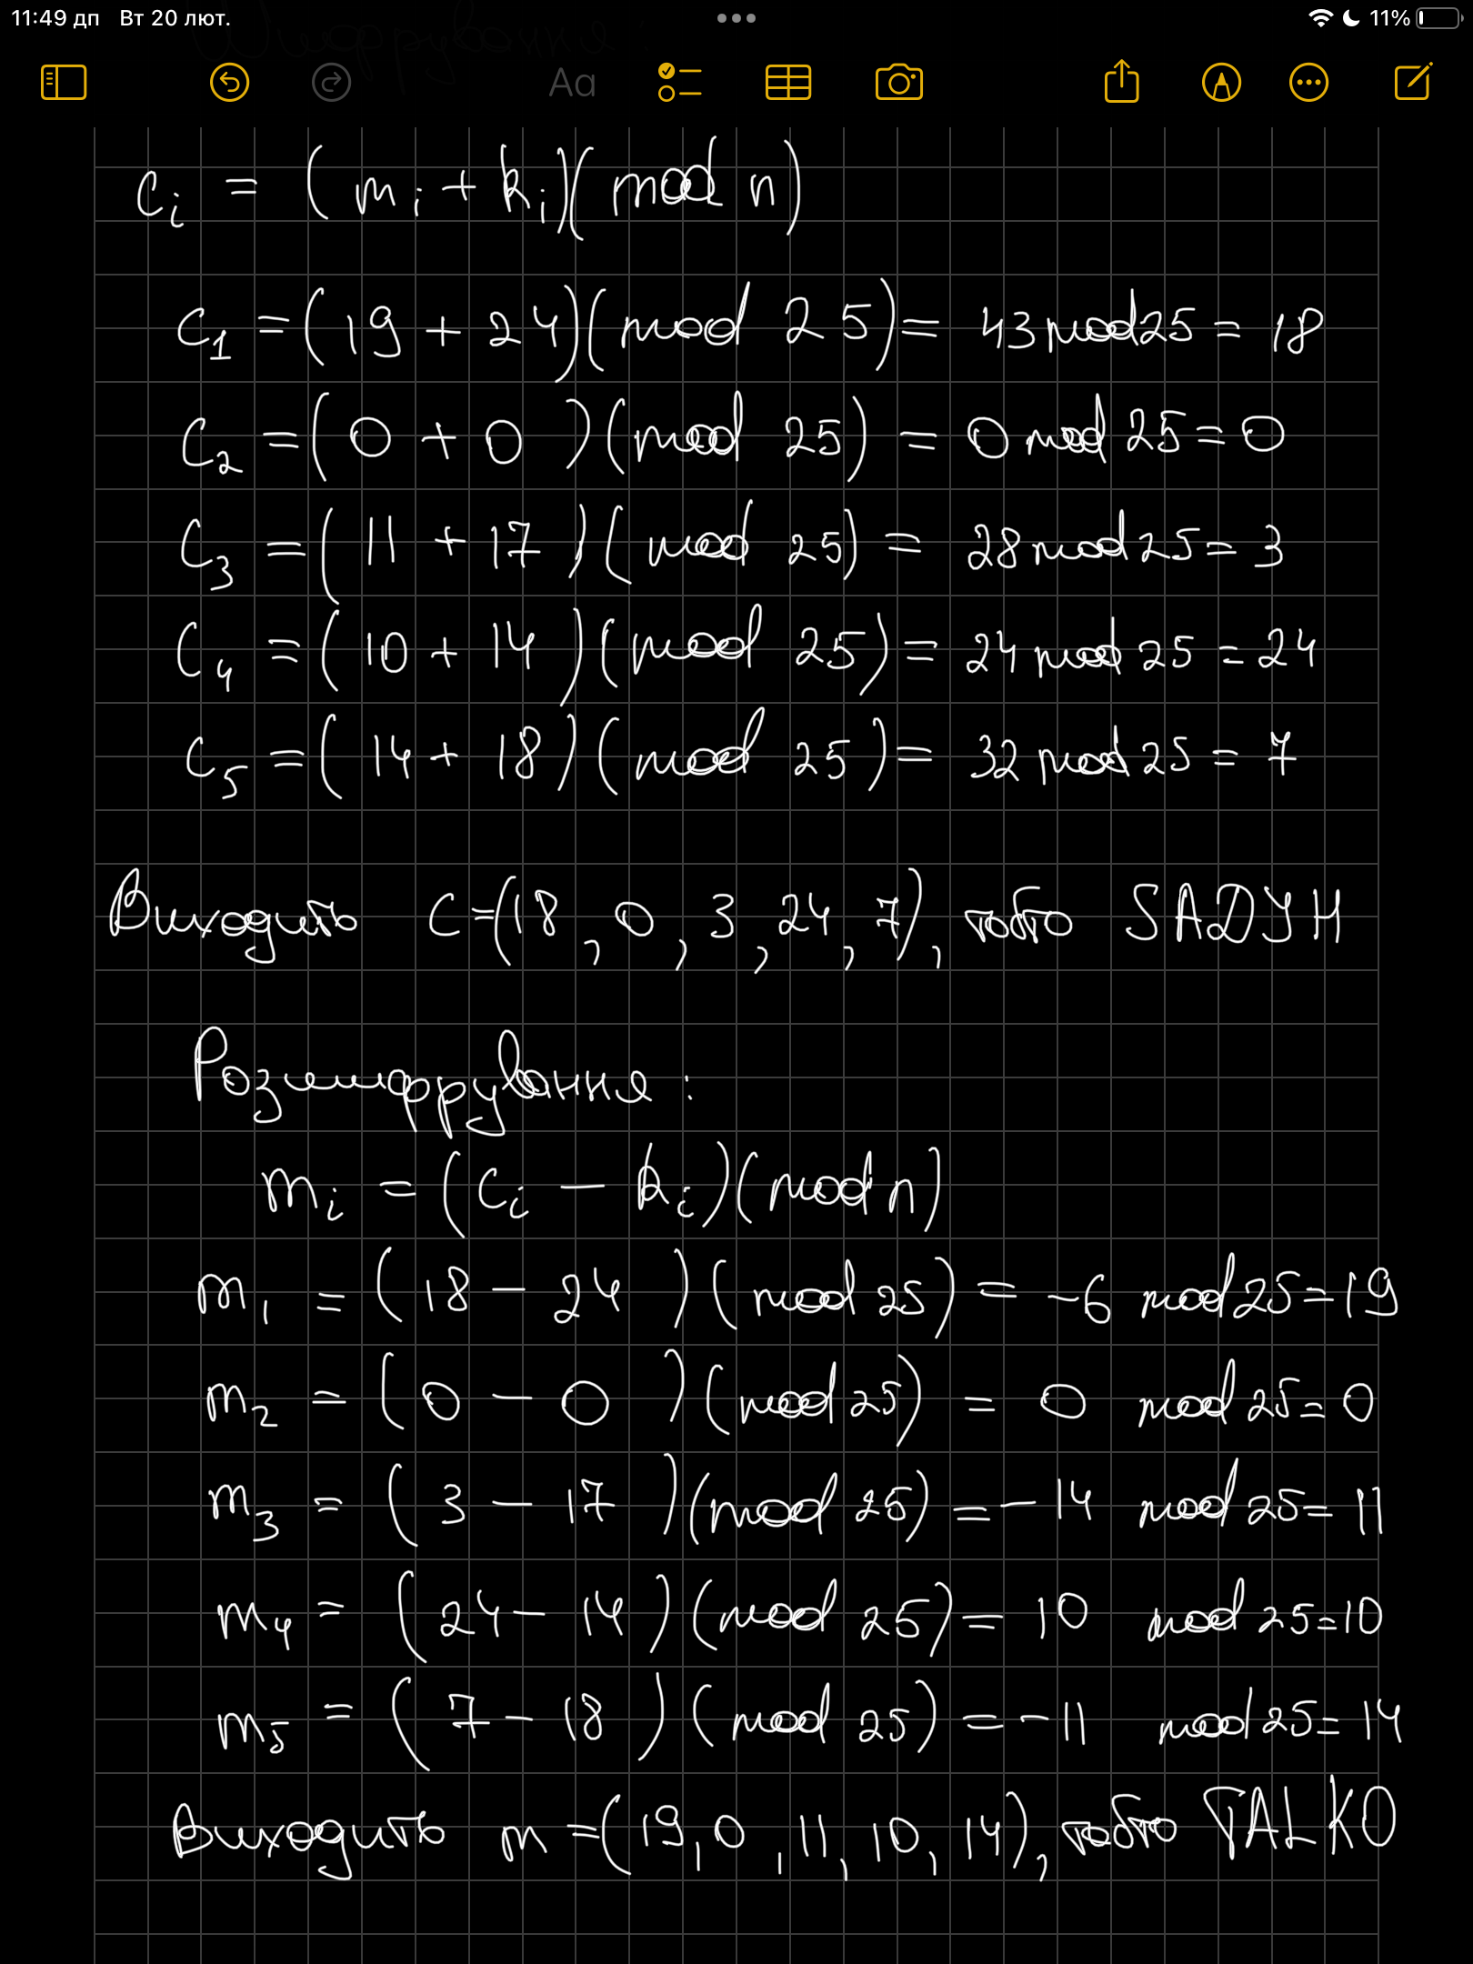 11:49 дп Вт 20 лют.
11%
Шифрування:
Aa
c_i = (m_i + k_i)(mod n)
c_1 = (19 + 24)(mod 25) = 43 mod 25 = 18
c_2 = (0 + 0)(mod 25) = 0 mod 25 = 0
c_3 = (11 + 17)(mod 25) = 28 mod 25 = 3
c_4 = (10 + 14)(mod 25) = 24 mod 25 = 24
c_5 = (14 + 18)(mod 25) = 32 mod 25 = 7
Виходить C = (18, 0, 3, 24, 7), тобто SADYH
Розшифрування:
m_i = (c_i - k_i)(mod n)
m_1 = (18 - 24)(mod 25) = -6 mod 25 = 19
m_2 = (0 - 0)(mod 25) = 0 mod 25 = 0
m_3 = (3 - 17)(mod 25) = -14 mod 25 = 11
m_4 = (24 - 14)(mod 25) = 10 mod 25 = 10
m_5 = (7 - 18)(mod 25) = -11 mod 25 = 14
Виходить m = (19, 0, 11, 10, 14), тобто TALKO